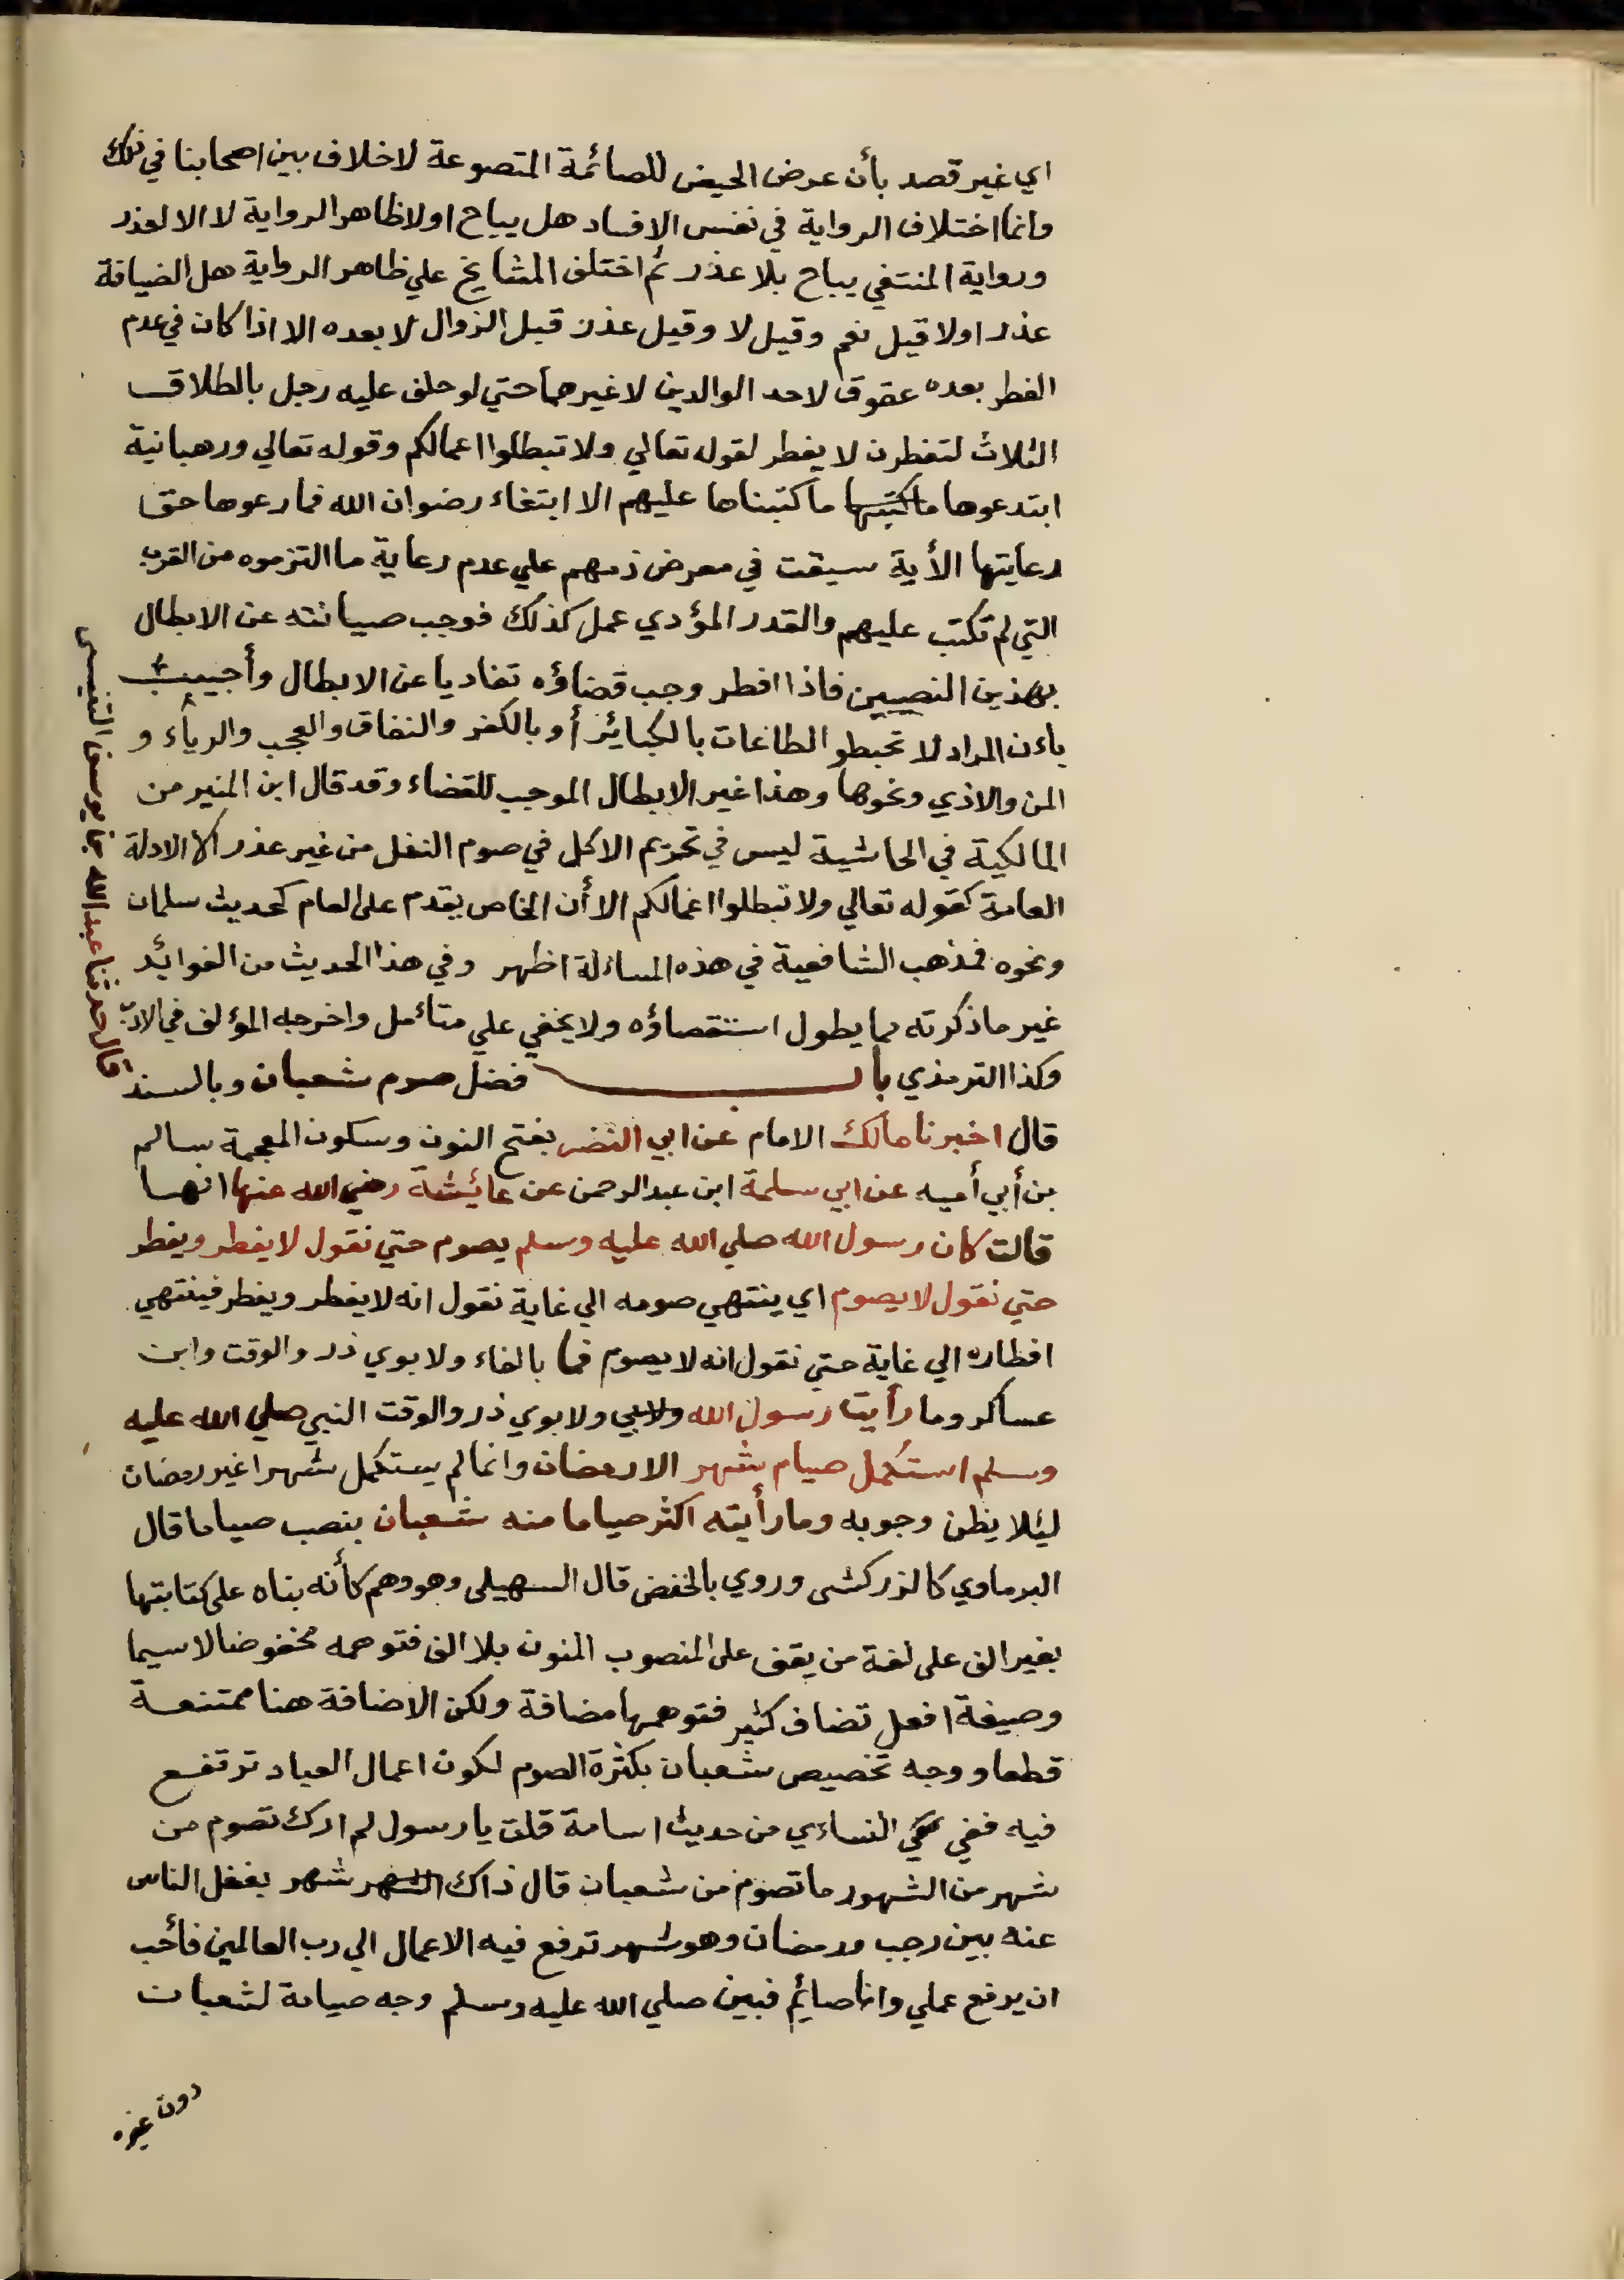 اي غير قصد بأن عرض الحيض للصائمة المتصوعة لاخلاف بين اصحابنا في ذلك
وانما اختلاف الرواية في نفس الافساد هل يباح اولا ظاهر الرواية لا الا لعذر
ورواية المنتفي يباح بلا عذر ثم اختلف المشايخ علي ظاهر الرواية هل الضيافة
عذر اولا قيل نعم وقيل لا وقيل عذر قبل الزوال لا بعده الا اذا كان في عدم
الفطر بعده عقوق لاحد الوالدين لا غيرهما حتي لو حلف عليه رجل بالطلاق
الثلاث لتفطرن لا يفطر لقوله تعالي ولا تبطلوا اعمالكم وقوله تعالي ورهبانية
ابتدعوها ما كتبناها عليهم الا ابتغاء رضوان الله فما رعوها حق
رعايتها الأية سيقت في معرض ذمهم علي عدم رعاية ما التزموه من القرب
التي لم تكتب عليهم والقدر المؤدي عمل كذلك فوجب صيانته عن الابطال
بهذين النصيين فاذا افطر وجب قضاؤه تفاديا عن الابطال وأجيب
بأن المراد لا تحبطو الطاعات بالكبائر أو بالكفر والنفاق والعجب والرياء و
المن والاذي ونحوها وهذا غير الابطال الموجب للقضاء وقد قال ابن المنير من
المالكية في الحاشية ليس في تحريم الاكل في صوم النفل من غير عذر الا الادلة
العامة كقوله تعالي ولا تبطلوا اعمالكم الا أن الخاص يقدم على العام كحديث سلمان
ونحوه فمذهب الشافعية في هذه المسائلة اظهر وفي هذا الحديث من الفوائد
غير ما ذكرته مما يطول استقصاؤه ولا يخفي علي متأمل واخرجه المؤلف في الادب
وكذا الترمذي باب فضل صوم شعبان وبالسند
قال حدثنا عبدالله بن يوسف التنيسي
قال اخبرنا مالك الامام عن ابي النضر بفتح النون وسكون المعجمة سالم
بن أبي أميه عن ابي سلمة ابن عبدالرحمن عن عائشة رضي الله عنها انها
قالت كان رسول الله صلي الله عليه وسلم يصوم حتي نقول لا يفطر ويفطر
حتي نقول لا يصوم اي ينتهي صومه الي غاية نقول انه لا يفطر ويفطر فينتهي
افطاره الي غاية حتي نقول انه لا يصوم فما بالفاء ولابوي ذر والوقت وابن
عساكر وما رأيت رسول الله ولابوي ذر والوقت النبي صلي الله عليه
وسلم استكمل صيام شهر الا رمضان وانما لم يستكمل شهرا غير رمضان
ليئلا يظن وجوبه وما رأيته اكثر صياما منه شعبان بنصب صياما قال
البرماوي كالزركشى وروي بالخفض قال السهيلى وهو وهم كأنه بناه على كتابتها
بغير الف على لغة من يقف على المنصوب المنون بلا الف فتوهمه مخفوضا لا سيما
وصيغة افعل تضاف كثير فتوهمها مضافة ولكن الاضافة هنا ممتنعة
قطعا ووجه تخصيص شعبان بكثرة الصوم لكون اعمال العباد ترتفع
فيه ففي النسائي من حديث اسامة قلت يا رسول لم ارك تصوم من
شهر من الشهور ما تصوم من شعبان قال ذاك شهر يغفل الناس
عنه بين رجب ورمضان وهو شهر ترفع فيه الاعمال الي رب العالمين فأحب
ان يرفع عملي وانا صائم فبين صلي الله عليه وسلم وجه صيامة لشعبان
دون غيره